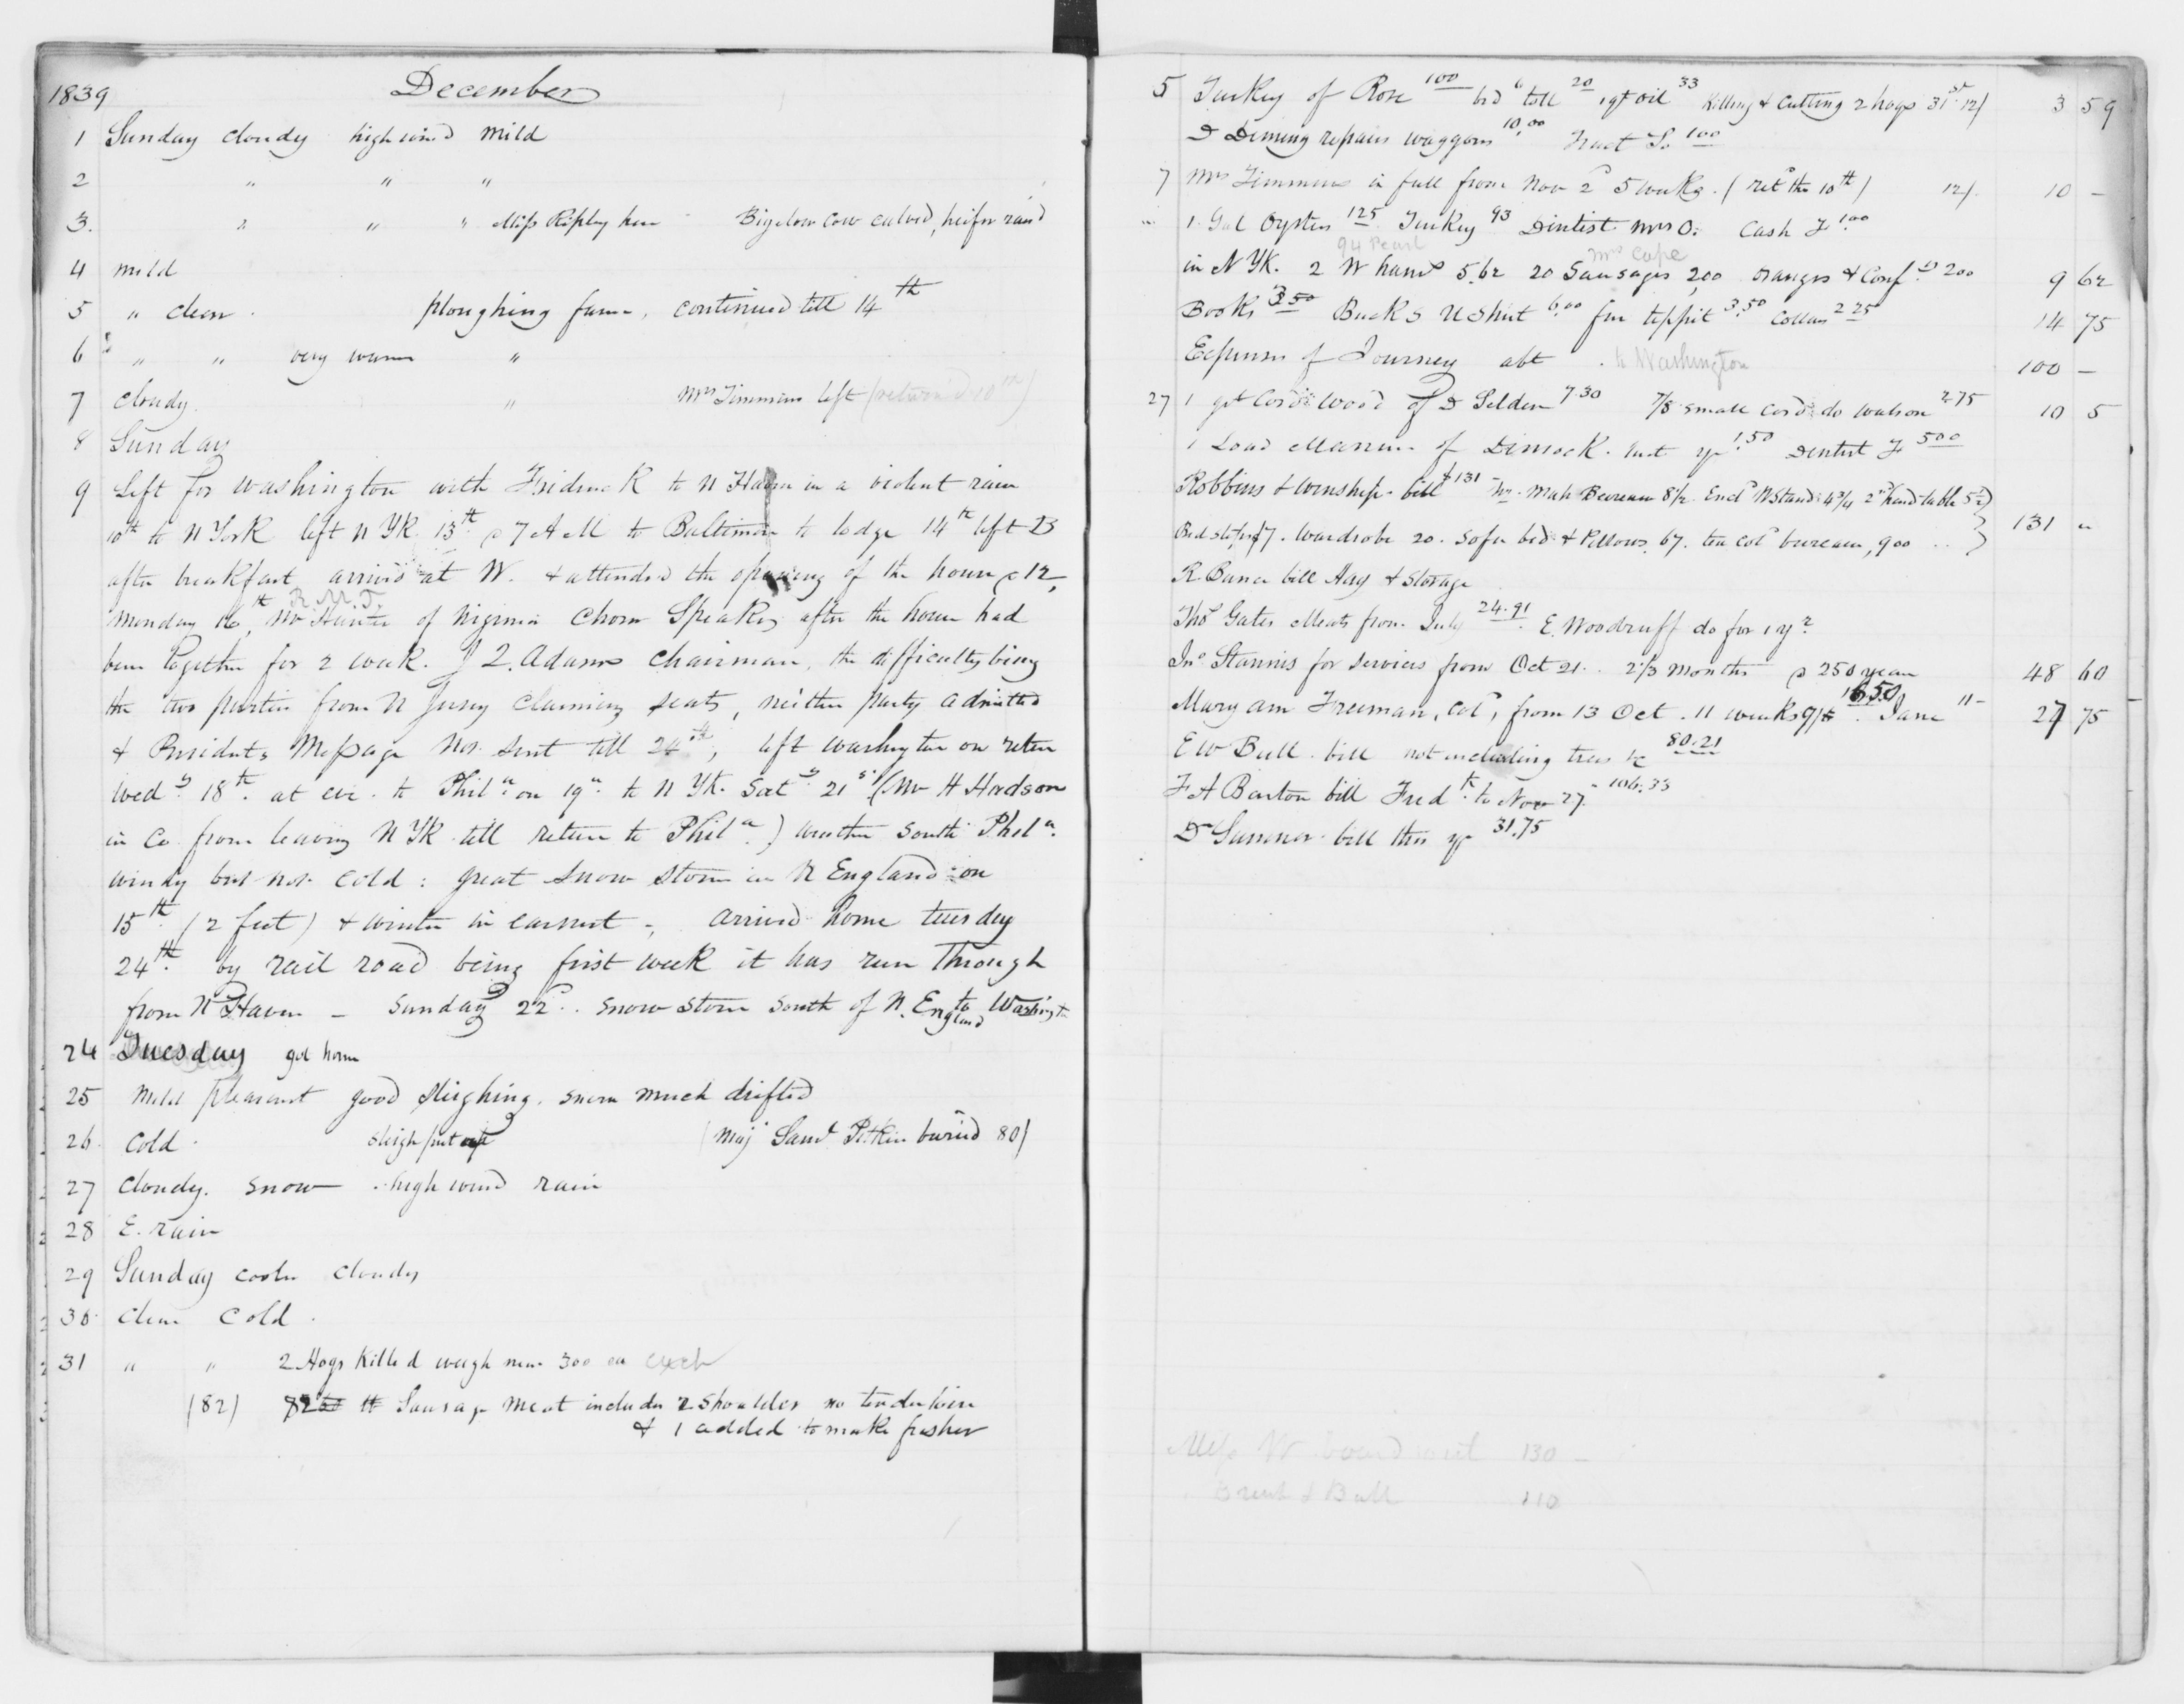 1839 December
1 Sunday cloudy high wind mild
2 " " "
3. " " " Miss Ripley here Bigelow Cow calved, heifer raisd
4 mild
5 " clear. ploughing farm, continued till 14th
6 " " very warm "
7 cloudy. " Mrs Timmons left (returnd 10th)
8 Sunday
9 Left for Washington with Fredrick to N Haven in a violent rain
10th to N York left N Yk 13th @ 7 A M to Baltimore to lodge 14th left B
after breakfast arrivd at W. & attended the opening of the house @ 12,
R. M. T.
Monday 16th, Mr Hunter of Virginia chosn Speaker after the house had
been together for 2 week. J Q. Adams Chairman, the difficulty being
the two parties from N Jersey claiming seats, neither party admitted
& Presidents Message not sent till 24th, left Washington on return
Wedy 18th. at eve. to Phila. on 19th to N Yk. Saty 21st (Mr H Hudson
in Co from leaving N Yk till return to Phila.) weather South Phila.
windy but not cold: great snow storm in N England on
15th (2 feet) & winter in earnest, arrived home tuesday
24th. by rail road being first week it has run through
from N Haven – Sunday 22d. snow storm south of N. England to Washingtn
24 Tuesday got home
25 Mild pleasant good sleighing. snow much drifted
26. Cold. sleigh put up (Maj Saml Pitkin buried 80)
27 Cloudy. snow high wind rain
28 E. rain
29 Sunday cooler cloudy
30. clear cold.
31 " " 2 Hogs killed weigh near 300 ea each
(82) Sausage meat includes 2 shoulders no tenderloin
& 1 added to make fresher
5 Turkey of Rose 100 bd 6 toll 20 1 qt oil 33 Killing & cutting 2 hogs 31st 12/ 3 59
D Deming repairs waggons 10,00 100
7 Mrs Timmons in full from Nov 2d 5 weeks. (retd the 10th) 12/. 10 –
1. Gal Oysters 125 Turkey 93 Dentist Mrs O. Cash F 1.00
94 Pearl Mrs Cape
in N Yk. 2 W hams 5.62 20 Sausages 2,00 oranges & Confy 200 9 62
Books 3 50 Bucks N Shirt 6.00 fur tippit 3.50 Collars 2 25 14 75
Expenses of Journey abt. to Washington 100 –
27 1 gt Cord wood of D Selden 7.30 7/8 small cord do Watson 2.75 10 5
1 Load Manure of Dimock. last yr 1.50 Dentist F 5 00
Robbins & Winship. bill $131 Mah Bureau 8 1/2. Encd W Stand: 4 3/4 2d hand table 5 1/2)
Bed steps 17. wardrobe 20. Sofa bed & Pillows, 67. tea cold bureau, 900 .. } 131 "
R Bunce bill Hay & storage
Thos Gates Meats from July 24.91. E. Woodruff do for 1 yr
Jno Stannis for services from Oct 21. 2 1/3 months @ 250 year 48 60
Mary Ann Freeman, cold, from 13 Oct. 11 weeks 9/ 16.50. Jane 11– 27 75
E W Bull. bill not including trees &c 80.21
F A Barton bill Fredk. to Nov 27. 106.33
Dr Sumner. bill this yr 31.75
Miss W board out 130 –
& Bull 110